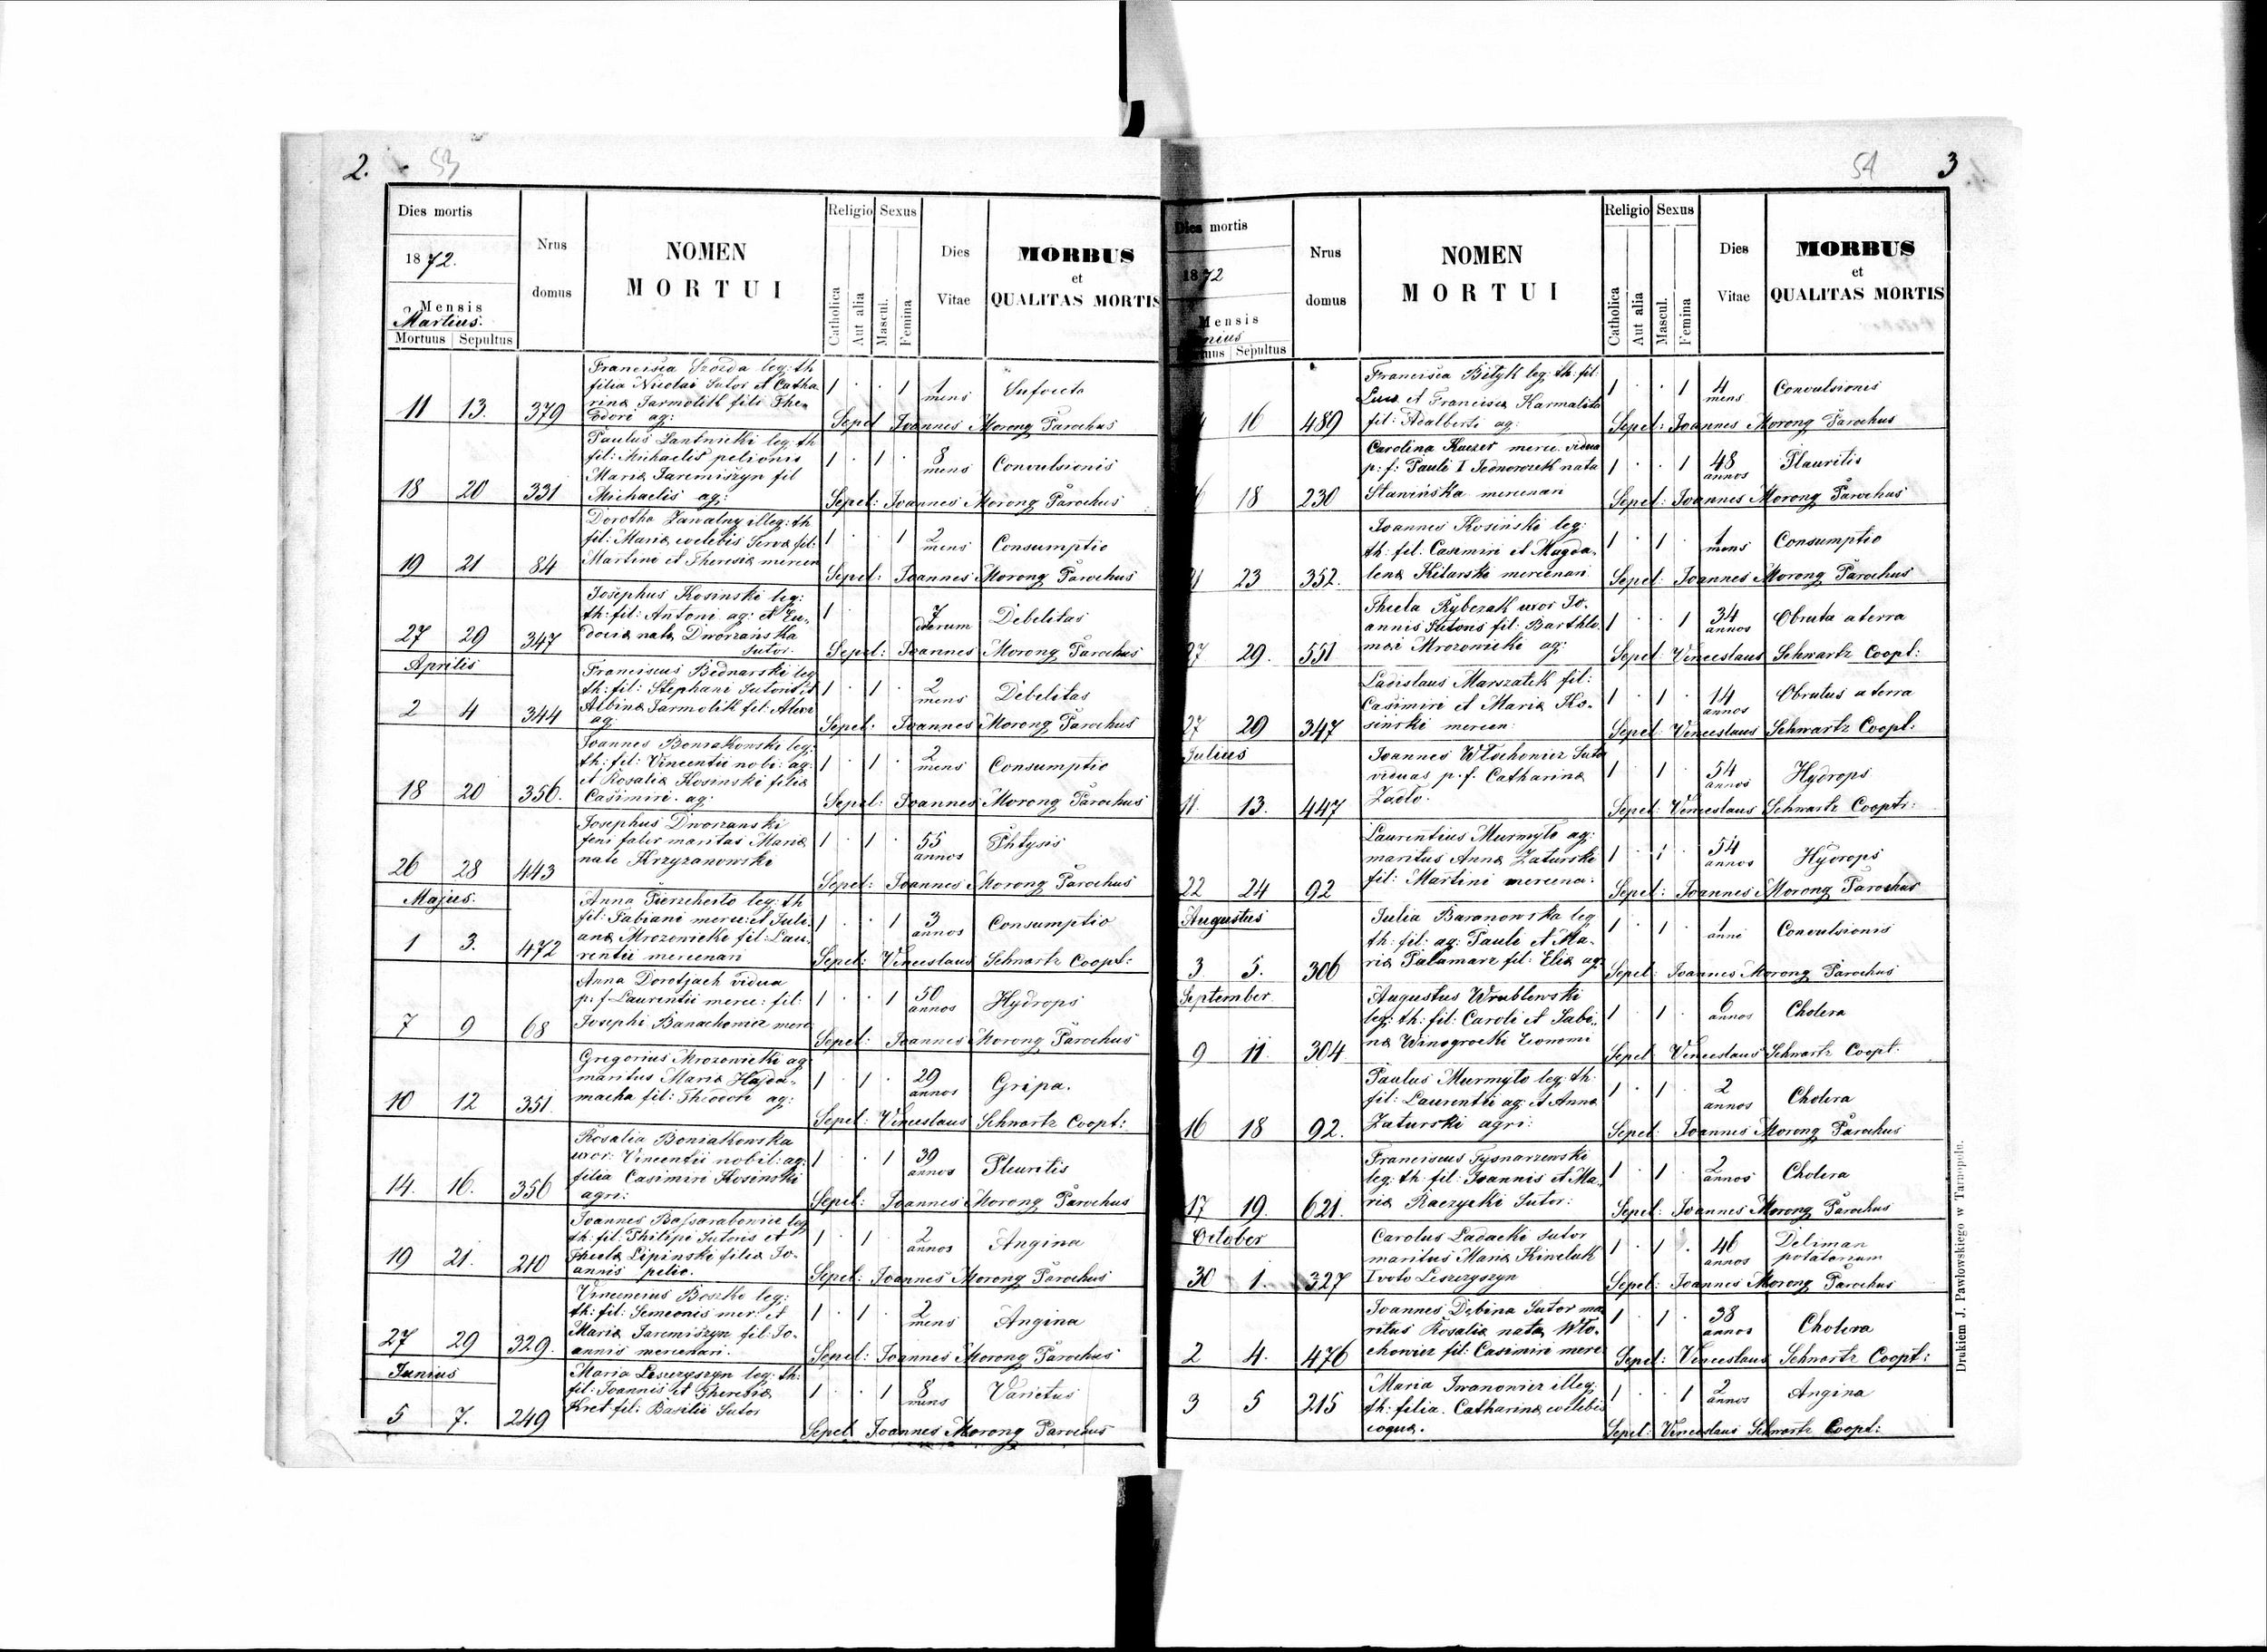 2. 53
Dies mortis
1872.
Mensis
Martius.
Mortuus Sepultus
Nrus domus
NOMEN
MORTUI
Religio
Catholica
Aut alia
Sexus
Mascul.
Femina
Dies
Vitae
MORBUS
et
QUALITAS MORTIS
Francisca Szozda leg: th
filia Nicolai Sutor et Catha
rinæ Jarmolik fili The-
odori ag:
11 13. 379 1 . . 1 1 mens Sufocta
Sepel Joannes Morong Parochus
Paulus Lantwicki leg: th
fil: Michaelis pelionis
Mariæ Jaremiszyn fil
Michaelis ag:
18 20 331 1 . 1 . 8 mens Convulsionis
Sepel: Joannes Morong Parochus
Dorotha Zawalny illeg: th
fil: Mariæ coelebis Servæ fil:
Martini et Theresiæ mercen
19 21 84 1 . . 1 2 mens Consumptio
Sepel: Joannes Morong Parochus
Josephus Kosinski leg:
th: fil: Antoni ag: et Eu-
dociæ nata Dworzańska
Sutor.
27 29 347 1 7 dierum Debelitas
Sepel: Joannes Morong Parochus
Aprilis
Franciscus Bednarski leg
th: fil: Stephani Sutoris et
Albinæ Jarmolik fil: Alexi
ag:
2 4 344 1 . 1 . 2 mens Debelitas
Sepel: Joannes Morong Parochus
Joannes Boniakowski leg:
th: fil: Vincentii nobi: ag:
et Rosaliæ Kosinski filiæ
Casimiri. ag:
18 20 356. 1 . 1 . 2 mens Consumptio
Sepel: Joannes Morong Parochus
Josephus Dworzanski
feri faber maritas Mariæ
nate Krzyzanowski
26 28 443 1 . 1 . 55 annos Phtysis
Sepel: Joannes Morong Parochus
Majus.
Anna Pierzchosto leg: th
fil: Fabiani merc: et Juli-
anæ Mrozowicki fil: Lau-
rentii mercenari
1 3. 472 1 . . 1 3 annos Consumptio
Sepel: Venceslaus Schwartz Coopt:
Anna Dorotjach vidua
p: f. Laurentii merce: fil:
Josephi Banachowicz merc
7 9 68 1 . . 1 50 annos Hydrops
Sepel: Joannes Morong Parochus
Gregorius Mrozowicki ag
maritus Mariæ Hajda-
macha fil: Theodori ag:
10 12 351. 1 . 1 . 29 annos Gripa.
Sepel: Venceslaus Schwartz Coopt:
Rosalia Boniakowska
uxor: Vincentii nobil: ag:
filia Casimiri Kosinski
agri:
14. 16. 356 1 . . 1 39 annos Pleuritis
Sepel: Joannes Morong Parochus
Joannes Bassarabowicz leg
th: fil: Philipi Sutoris et
Theclæ Lipinski filiæ Jo-
annis pelio.
19 21. 210 1 . 1 2 annos Angina
Sepel: Joannes Morong Parochus
Vincencius Boszko leg:
th: fil: Semeonis mer: et
Mariæ Jaremiszyn fil: Jo-
annis mercenari.
27 29 329. 1 . 1 . 2 mens Angina
Sepel: Joannes Morong Parochus
Junius
Maria Leszczyszyn leg: th:
fil: Joannis et Theresiæ
Kret fil: Basilii Sutor
5 7. 249 1 . . 1 8 mens Varietus
Sepel Joannes Morong Parochus
54 3
Dies mortis
1872
Mensis
Sepultus
Nrus domus
NOMEN
MORTUI
Religio
Catholica
Aut alia
Sexus
Mascul.
Femina
Dies
Vitae
MORBUS
et
QUALITAS MORTIS
Francisca Bilyk leg: th: fil:
et Francisca Karmalita
fil: Adalberti ag:
16 489 1 . . 1 4 mens Convulsiones
Sepel: Joannes Morong Parochus
Carolina Kaczer merc. vidua
p: f: Pauli I Jednorozek nata
Stawińska mercenari
18 230 1 . . 1 48 annos Plauritis
Sepel: Joannes Morong Parochus
Joannes Kosiński leg:
th: fil: Casimiri et Magda-
lenæ Kitarski mercenari
23 352. 1 . 1 . 1 mens Consumptio
Sepel: Joannes Morong Parochus
Thecla Rybczak uxor Jo-
annis Sutoris fil: Barthlo-
mei Mrozowicki ag:
27 29. 551 1 . . 1 34 annos Obruta a terra
Sepel: Venceslaus Schwartz Coopt:
Ladislaus Marszałek fil:
Casimiri et Mariæ Ko-
sinski mercen:
27 29 347 1 . 1 . 14 annos Obrutus a terra
Sepel: Venceslaus Schwartz Coopt:
Julius
Joannes Włochowicz Suto
viduas p. f. Catharinæ
Zadło.
11. 13. 447 1 . 1 . 54 annos Hydrops
Sepel: Venceslaus Schwartz Coopt:
Laurentius Murmyło ag:
maritus Annæ Zaturski
fil: Martini mercena:
22 24 92 1 . 1 . 54 annos Hydrops
Sepel: Joannes Morong Parochus
Augustus
Julia Baranowska leg
th: fil: ag: Pauli et Ma-
riæ Palamarz fil: Eliæ ag:
3 5. 306 1 . 1 . 1 anni Convulsionis
Sepel: Joannes Morong Parochus
September
Augustus Wrublewski
leg: th: fil: Caroli et Sabi-
næ Winogrocki Economi
9 11. 304 1 . 1 . 6 annos Cholera
Sepel: Venceslaus Schwartz Coopt.
Paulus Murmyło leg: th:
fil: Laurentii ag: et Annæ
Zaturski agri:
16 18 92. 1 . 1 . 2 annos Cholera
Sepel: Joannes Morong Parochus
Franciscus Tysnarzewski
leg: th: fil: Joannis et Ma-
riæ Raczycki Sutor:
17 19. 621. 1 . 1 . 2 annos Cholera
Sepel: Joannes Morong Parochus
October
Carolus Ladacki Sutor
maritus Mariæ Kineluk
I voto Leszczyszyn
30 1. 327 1 . 1 . 46 annos Deliman
potatorium
Sepel: Joannes Morong Parochus
Joannes Dębina Sutor ma
ritus Rosaliæ nata Wło-
chowicz fil: Casimiri merc
2 4. 476 1 . 1 . 38 annos Cholera
Sepel: Venceslaus Schwartz Coopt:
Maria Iwanowicz illeg:
th: filia. Catharinæ coelebis
coquæ.
3 5 215 1 . . 1 2 annos Angina
Sepel: Venceslaus Schwartz Coopt:
Drukiem J. Pawłowskiego w Tarnopolu.